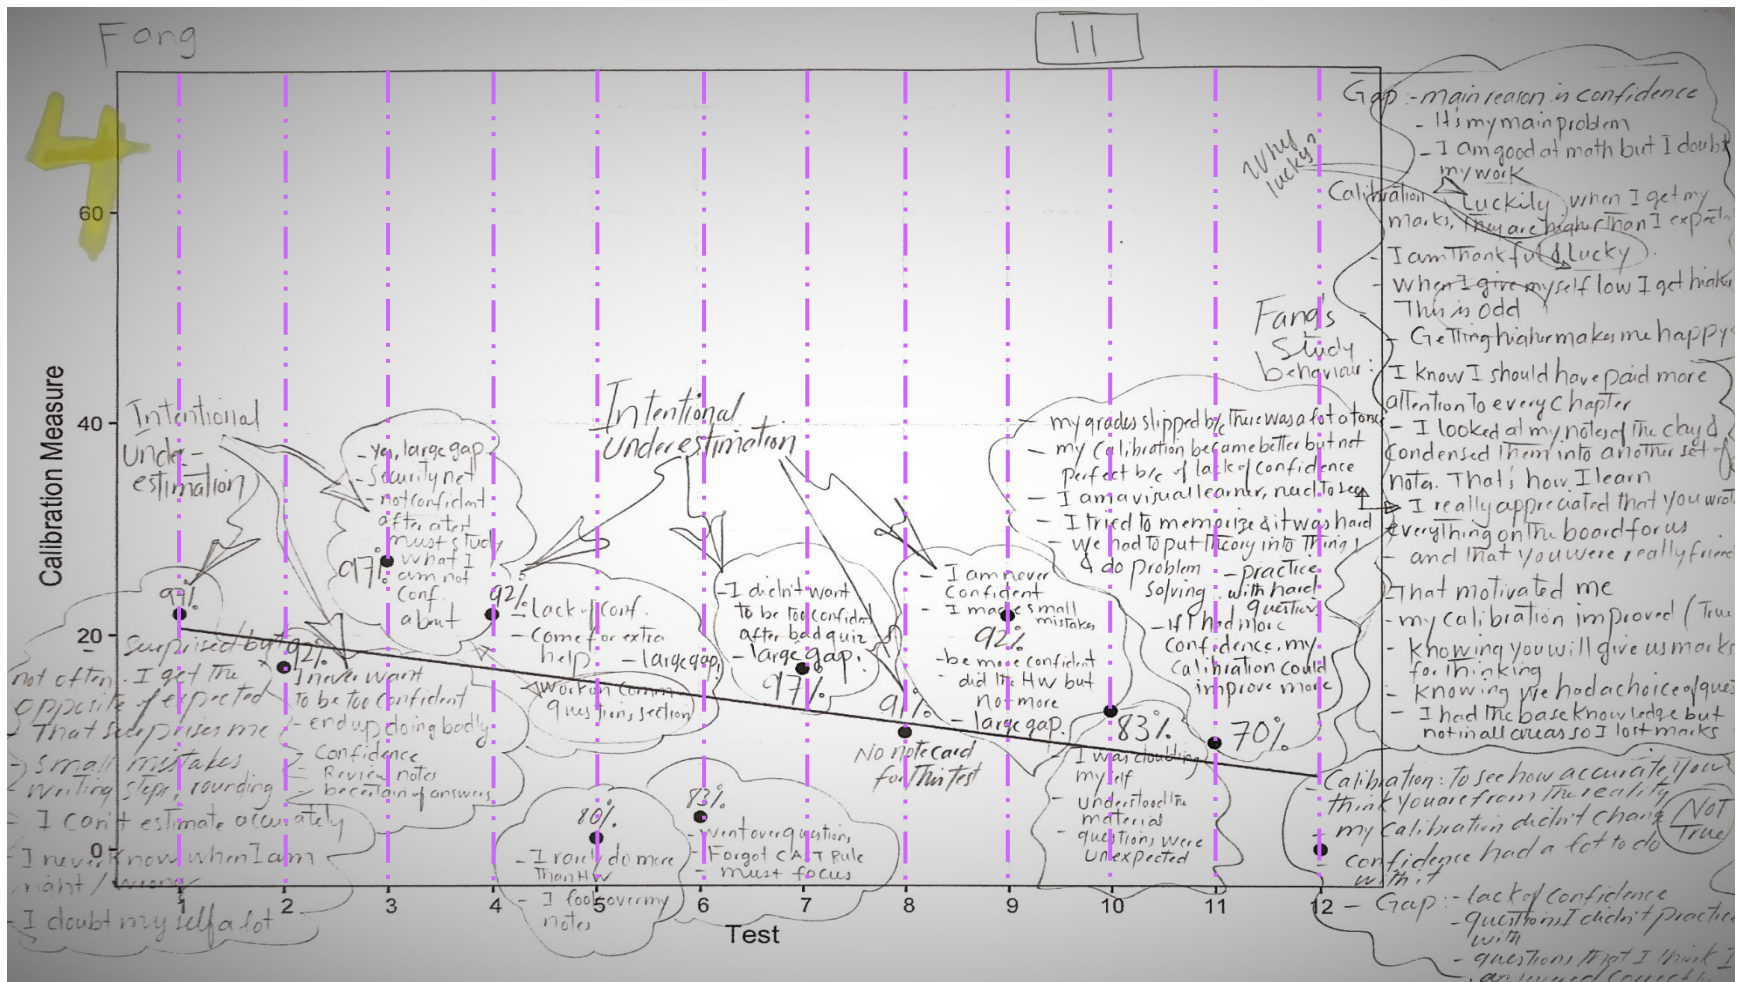 Fang
11
4
Calibration Measure
60
40
20
0
1 2 3 4 5 6 7 8 9 10 11 12
Test
Intentional
under-
estimation
99%
Surprised by
not often. I get the
opposite of expected
That surprises me
- small mistakes
writing steps, rounding
- I can't estimate accurately
- I never know when I am
right / wrong
- I doubt myself a lot
92%
I never want
to be too confident
- end up doing badly
- Confidence
- Review notes
- be certain of answers
- Yes, large gap
- Security net
- not confident
after a test
must study
what I
am not
conf.
about
97%
92%
- Lack of conf.
- come for extra
help - large gap.
- Work on Comm.
questions section
Intentional
underestimation
80%
- I rarely do more
than HW
- I look over my
notes
83%
- went over question,
- Forgot CAST Rule
- must focus
- I didn't want
to be too confident
after bad quiz
- large gap.
97%
91%
No note card
for this test
- I am never
Confident
- I made small
mistakes
92%
- be more confident
did the HW but
not more
- large gap.
83%
- I was doubting
myself
- understood the
material
- questions were
unexpected
70%
Fang's
Study
behaviour:
- my grades slipped b/c there was a lot at once
- my calibration became better but not
perfect b/c of lack of confidence
- I am a visual learner, need to see
- I tried to memorize & it was hard
- We had to put theory into things
& do problem
solving - practice
with hard
question
- If I had more
Confidence, my
Calibration could
improve more
Why
lucky?
Gap :- main reason is confidence
- It's my main problem
- I am good at math but I doubt
my work
Calibration Luckily when I get my
marks, they are higher than I
- I am Thankful & lucky.
- When I give myself low I get higher
This is odd
- Getting higher makes me happy
I know I should have paid more
attention to every chapter
- I looked at my notes of the day &
Condensed them into another set of
notes. That's how I learn
- I really appreciated that you wrote
everything on the board for us
- and that you were really
That motivated me
- my calibration improved (True
- Knowing you will give us marks
for thinking
- knowing we had a choice of
- I had the base knowledge but
not in all areas so I lost marks
- Calibration: To see how accurate you
think you are from the reality
- my calibration didn't change
NOT
True
- confidence had a lot to do
with it
- Gap :- lack of confidence
- questions I didn't practice
with
- questions that I think I
answered